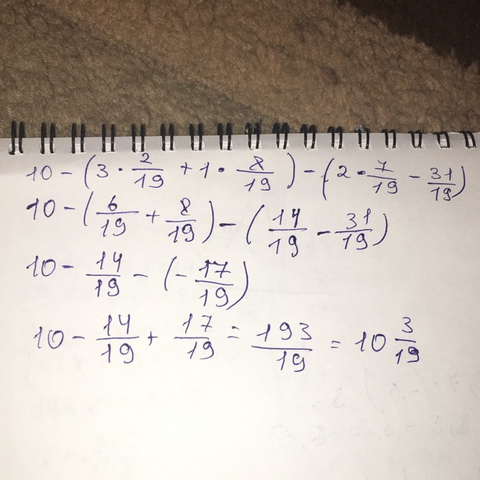 10 - (3 · 2/19 + 1 · 8/19) - (2 · 7/19 - 31/19)
10 - (6/19 + 8/19) - (14/19 - 31/19)
10 - 14/19 - (-17/19)
10 - 14/19 + 17/19 = 193/19 = 10 3/19